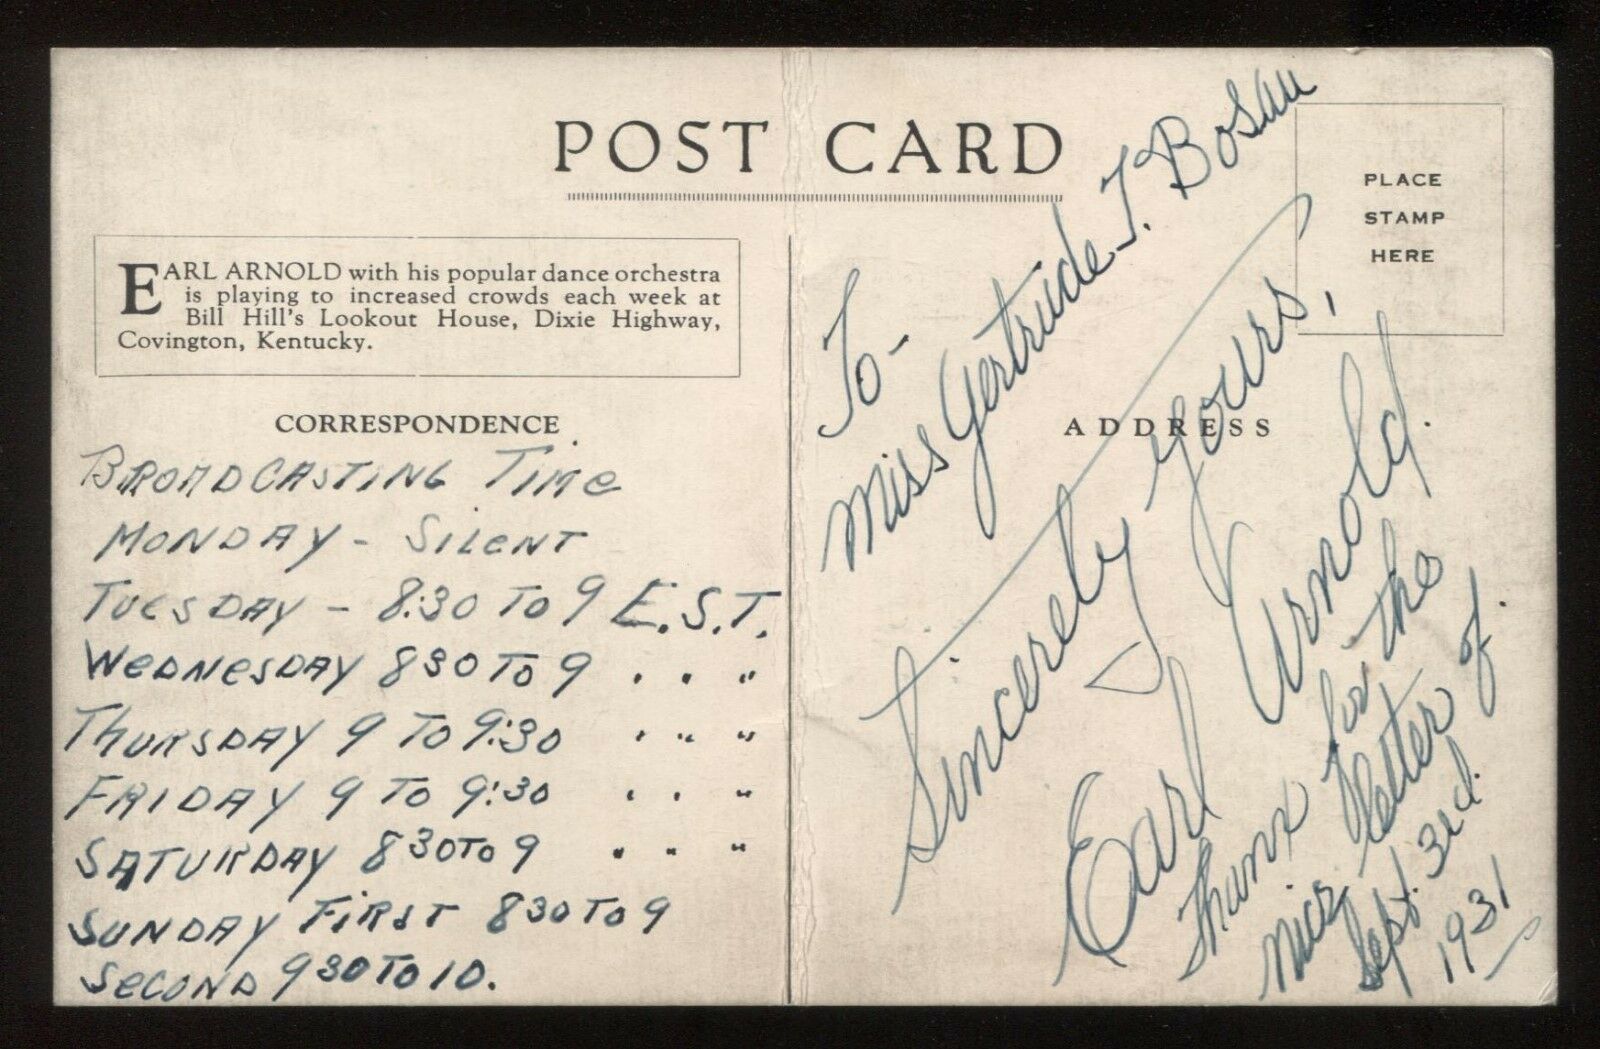 POST CARD
PLACE
STAMP
HERE
EARL ARNOLD with his popular dance orchestra
is playing to increased crowds each week at
Bill Hill's Lookout House, Dixie Highway,
Covington, Kentucky.
CORRESPONDENCE
BROADCASTING TIME
MONDAY - SILENT
TUESDAY - 8:30 TO 9 E.S.T.
WEDNESDAY 830 TO 9 " " "
THURSDAY 9 TO 9:30 " " "
FRIDAY 9 TO 9:30 " " "
SATURDAY 830 TO 9 " " "
SUNDAY FIRST 830 TO 9
SECOND 930 TO 10.
ADDRESS
To-
Miss Gertrude T. Bosau
Sincerely Yours,
Earl Arnold.
Thanx for the
nice letter of.
Sept. 3rd.
1931